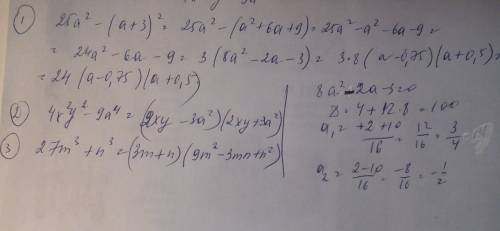 ① 25a² - (a+3)² = 25a² - (a²+6a+9) = 25a² - a² - 6a - 9 =
= 24a² - 6a - 9 = 3(8a² - 2a - 3) = 3·8(a-0,75)(a+0,5) =
= 24(a-0,75)(a+0,5)
② 4x²y² - 9a⁴ = (2xy - 3a²)(2xy+3a²)
③ 27m³ + n³ = (3m+n)(9m² - 3mn + n²)
8a² - 2a - 3 = 0
D = 4 + 12·8 = 100
a₁ = +2+10/16 = 12/16 = 3/4
a₂ = 2-10/16 = -8/16 = -1/2